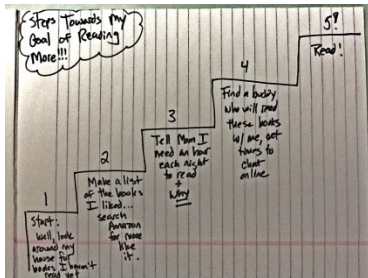 Steps Towards My
Goal of Reading
More!!!
1
Start:
Well, look
around my
house for
books I haven't
read yet
2
Make a list
of the books
I liked...
search
Amazon
for more
like
it.
3
Tell Mom I
need an hour
each night
to read
+
Why
4
Find a buddy
who will read
these books
w/ me, set
times to
chat
online
5!
Read!